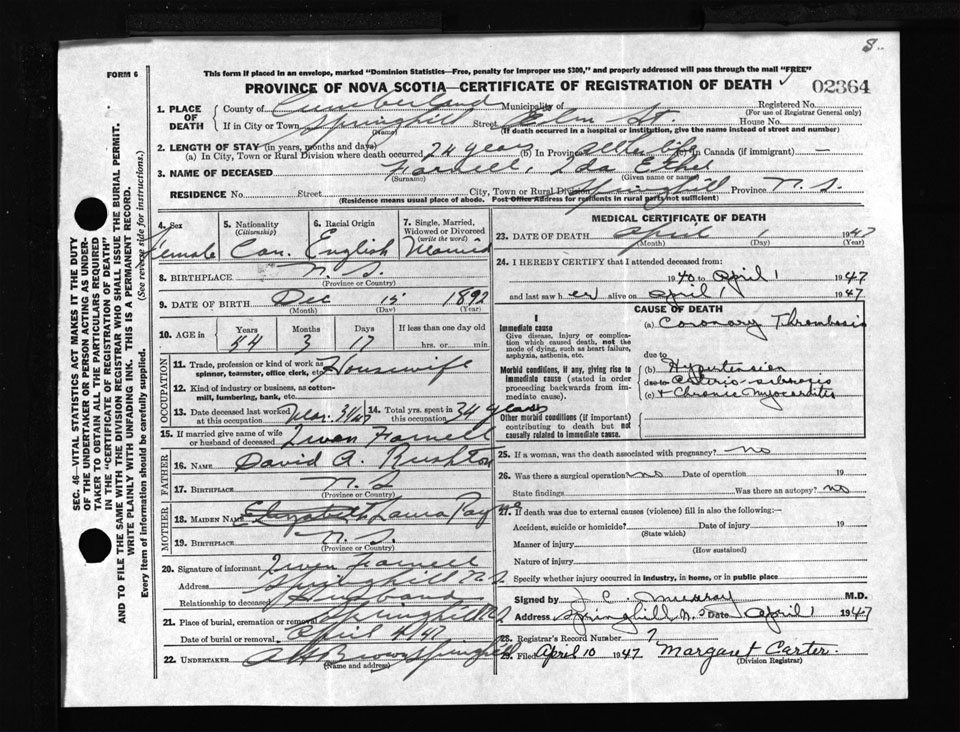 FORM 6
This form if placed in an envelope, marked "Dominion Statistics—Free, penalty for improper use $300," and properly addressed will pass through the mail "FREE"
PROVINCE OF NOVA SCOTIA—CERTIFICATE OF REGISTRATION OF DEATH
02364
1. PLACE OF DEATH
County of Cumberland Municipality of Registered No.
(For use of Registrar General only)
If in City or Town Springhill Street Elm St. House No.
(Name) (If death occurred in a hospital or institution, give the name instead of street and number)
2. LENGTH OF STAY (in years, months and days)
(a) In City, Town or Rural Division where death occurred 24 years (b) In Province All her life (c) In Canada (if immigrant) —
3. NAME OF DECEASED Farnell, Ida Ethel
(Surname) (Given name or names)
RESIDENCE No. Street City, Town or Rural Division Springhill Province N.S.
(Residence means usual place of abode. Post Office Address for residents in rural parts not sufficient)
4. Sex Female
5. Nationality (Citizenship) Can.
6. Racial Origin English
7. Single, Married, Widowed or Divorced (write the word) Married
8. BIRTHPLACE N.S.
(Province or Country)
9. DATE OF BIRTH Dec 15 1892
(Month) (Day) (Year)
10. AGE in Years 54 Months 3 Days 17 If less than one day old hrs. or min.
OCCUPATION
11. Trade, profession or kind of work as spinner, teamster, office clerk, etc. Housewife
12. Kind of industry or business, as cotton-mill, lumbering, bank, etc.
13. Date deceased last worked at this occupation Mar. 31/47
14. Total yrs. spent in this occupation 34 years
15. If married give name of wife or husband of deceased Farnell
FATHER
16. NAME David A. Rushton
17. BIRTHPLACE N.S.
(Province or Country)
MOTHER
18. MAIDEN NAME Elizabeth Laura Payne
19. BIRTHPLACE N.S.
(Province or Country)
20. Signature of informant Farnell
Address Springhill N.S.
Relationship to deceased Husband
21. Place of burial, cremation or removal Springhill N.S.
Date of burial or removal April 4/47
22. UNDERTAKER A H Brown Springhill
(Name and address)
MEDICAL CERTIFICATE OF DEATH
23. DATE OF DEATH April 1 1947
(Month) (Day) (Year)
24. I HEREBY CERTIFY that I attended deceased from:
1940 to April 1 1947
and last saw her alive on April 1 1947
CAUSE OF DEATH
I
Immediate cause
Give disease, injury or complication which caused death, not the mode of dying, such as heart failure, asphyxia, asthenia, etc.
(a) Coronary Thrombosis
due to
Morbid conditions, if any, giving rise to immediate cause (stated in order proceeding backwards from immediate cause).
(b) Hypertension
due to Arterio-sclerosis
(c) + Chronic Myocarditis
Other morbid conditions (if important) contributing to death but not causally related to immediate cause.
25. If a woman, was the death associated with pregnancy? no
26. Was there a surgical operation no Date of operation 19
State findings Was there an autopsy? no
27. If death was due to external causes (violence) fill in also the following:—
Accident, suicide or homicide? Date of injury 19
(State which)
Manner of injury
(How sustained)
Nature of injury
Specify whether injury occurred in industry, in home, or in public place
Signed by J C. Murray M.D.
Address Springhill, N.S Date April 1 1947
28. Registrar's Record Number
29. Filed April 10 1947 Margaret Carter.
(Division Registrar)
SEC. 46—VITAL STATISTICS ACT MAKES IT THE DUTY
OF THE UNDERTAKER OR PERSON ACTING AS UNDER-
TAKER TO OBTAIN ALL THE PARTICULARS REQUIRED
IN THE "CERTIFICATE OF REGISTRATION OF DEATH"
AND TO FILE THE SAME WITH THE DIVISION REGISTRAR WHO SHALL ISSUE THE BURIAL PERMIT.
WRITE PLAINLY WITH UNFADING INK. THIS IS A PERMANENT RECORD.
Every item of information should be carefully supplied. (See reverse side for instructions.)